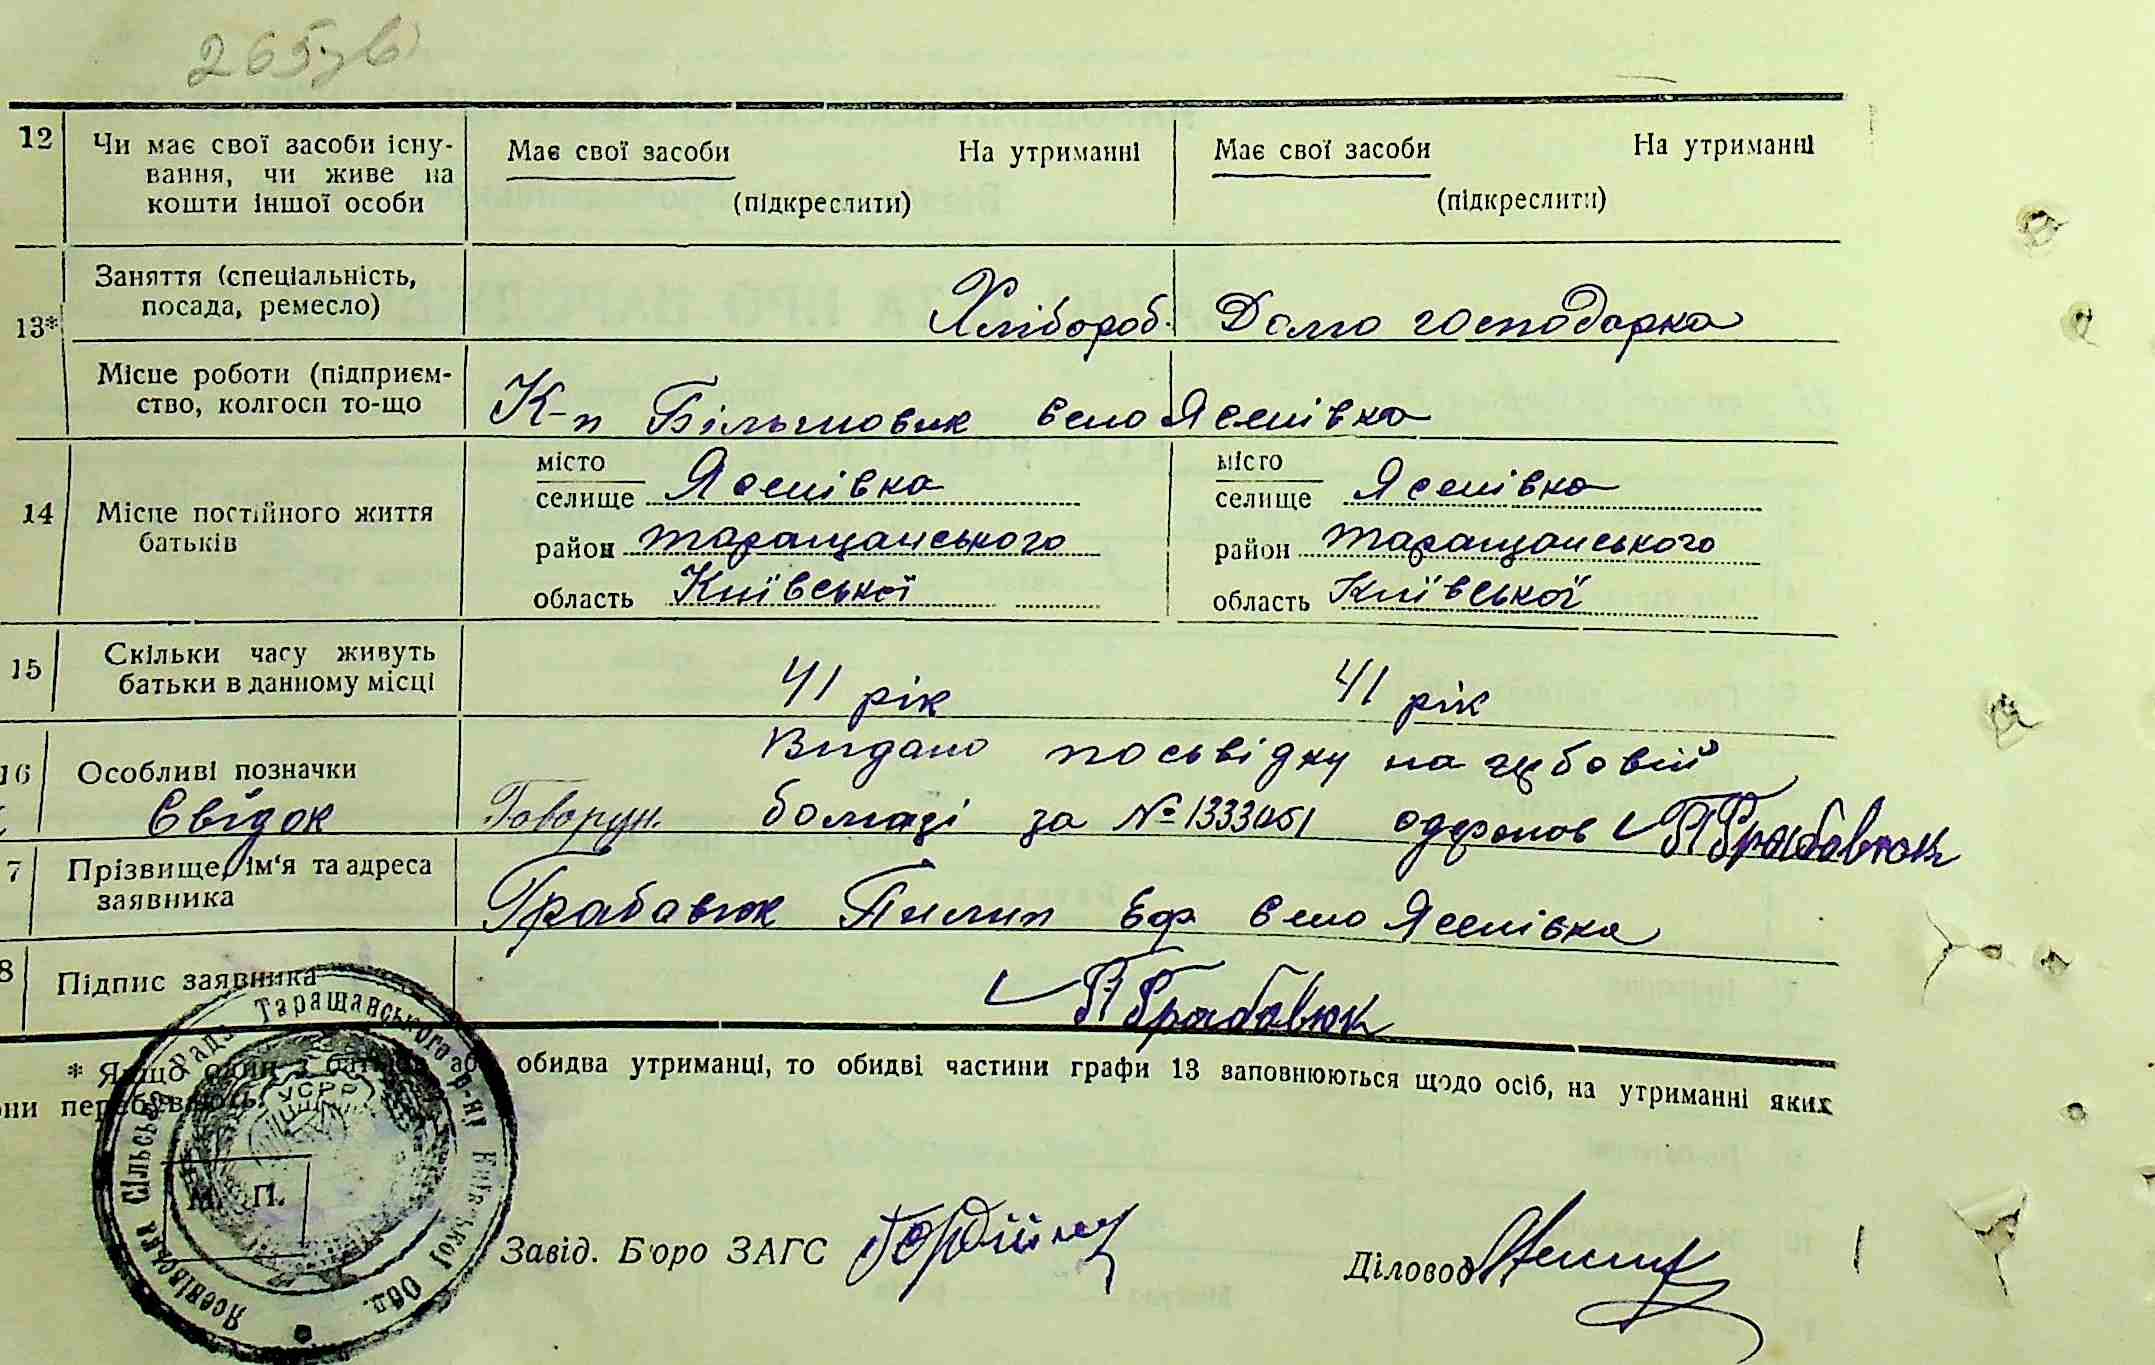 265 зв
12 Чи має свої засоби існу- Має свої засоби На утриманні Має свої засоби На утриманні
вання, чи живе на
кошти іншої особи (підкреслити) (підкреслити)
13* Заняття (спеціальність,
посада, ремесло) Хлібороб. Домо господарка
Місце роботи (підприєм-
ство, колгосп то-що К-п Більшовик село Ясенівка
14 Місце постійного життя
батьків
місто місто
селище Ясенівка селище Ясенівка
район таращанського район таращанського
область Київської область Київської
15 Скільки часу живуть
батьки в данному місці 41 рік 41 рік
16 Особливі позначки Видано посвідку на гербовій
Свідок Говорун. бомазі за № одержав П Грабавюк
7 Прізвище, ім'я та адреса
заявника Грабавюк Пилип Еф село Ясенівка
8 Підпис заявника П Грабавюк
* Якщо один з батьків або обидва утриманці, то обидві частини графи 13 заповнюються щодо осіб, на утриманні яких
они перебувають.
Ясенівська Сільська Рада Таращанського р-ну Київської Обл.
УСРР
М. П.
Завід. Б'юро ЗАГС
Діловод